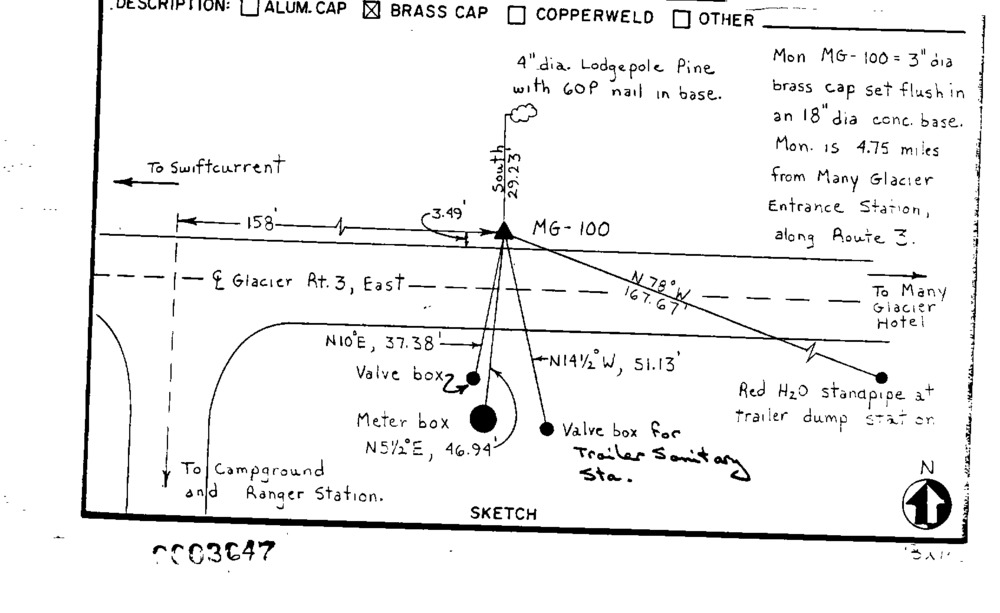 DESCRIPTION: ALUM. CAP BRASS CAP COPPERWELD OTHER
4" dia. Lodgepole Pine
with 60P nail in base.
Mon MG-100 = 3" dia
brass cap set flush in
an 18" dia conc. base.
Mon. is 4.75 miles
from Many Glacier
Entrance Station,
along Route 3.
South
29.23'
To Swiftcurrent
158'
3.49'
MG-100
℄ Glacier Rt. 3, East
N 78° W
167.67'
To Many
Glacier
Hotel
N10°E, 37.38'
N14½°W, 51.13'
Valve box
Red H2O standpipe at
trailer dump station
Meter box
N5½°E, 46.94'
Valve box for
Trailer Sanitary
Sta.
To Campground
and Ranger Station.
N
SKETCH
0003647